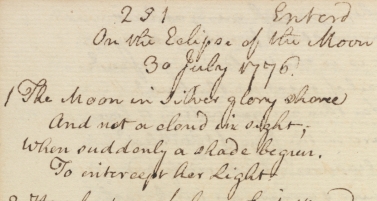 231 Enterd
On the Eclipse of the Moon
30 July 1776.
1 The Moon in Silver glory shone
And not a cloud in sight,
When suddenly a shade begun.
To intercept her Light.